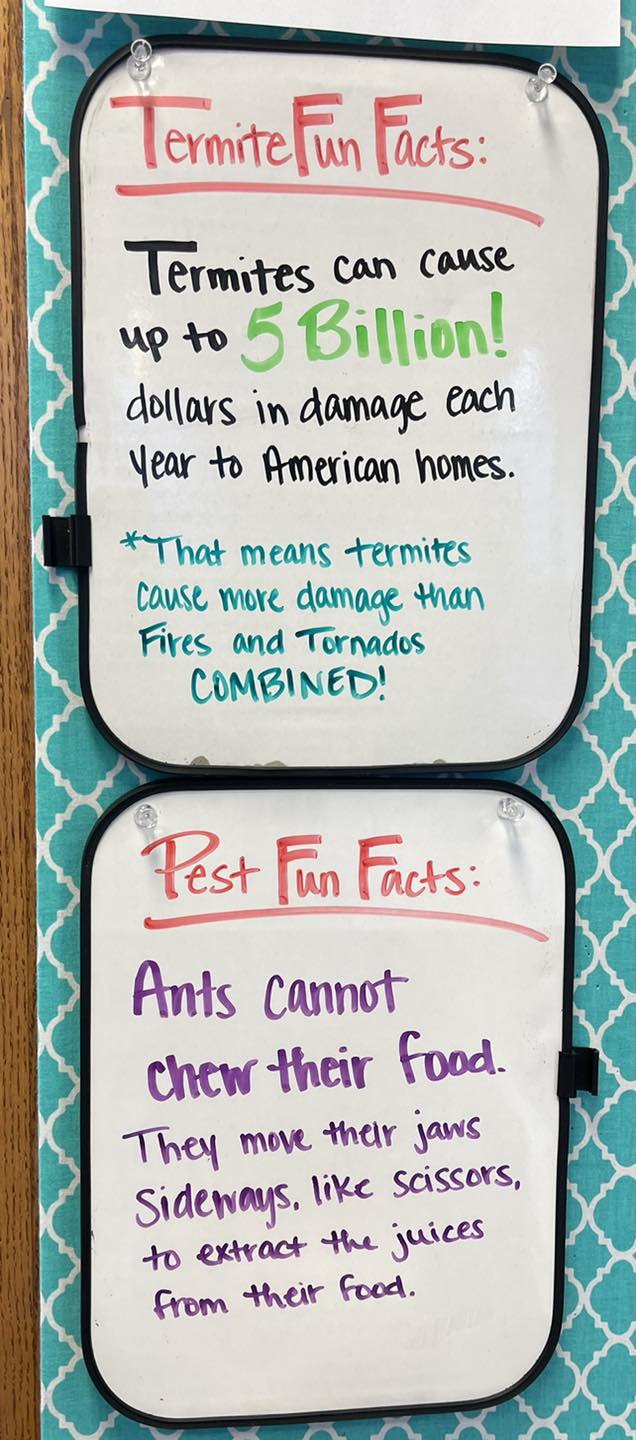 Termite Fun Facts:
Termites can cause
up to 5 Billion!
dollars in damage each
year to American homes.
*That means termites
cause more damage than
Fires and Tornados
COMBINED!
Pest Fun Facts:
Ants cannot
chew their food.
They move their jaws
sideways, like scissors,
to extract the juices
from their food.